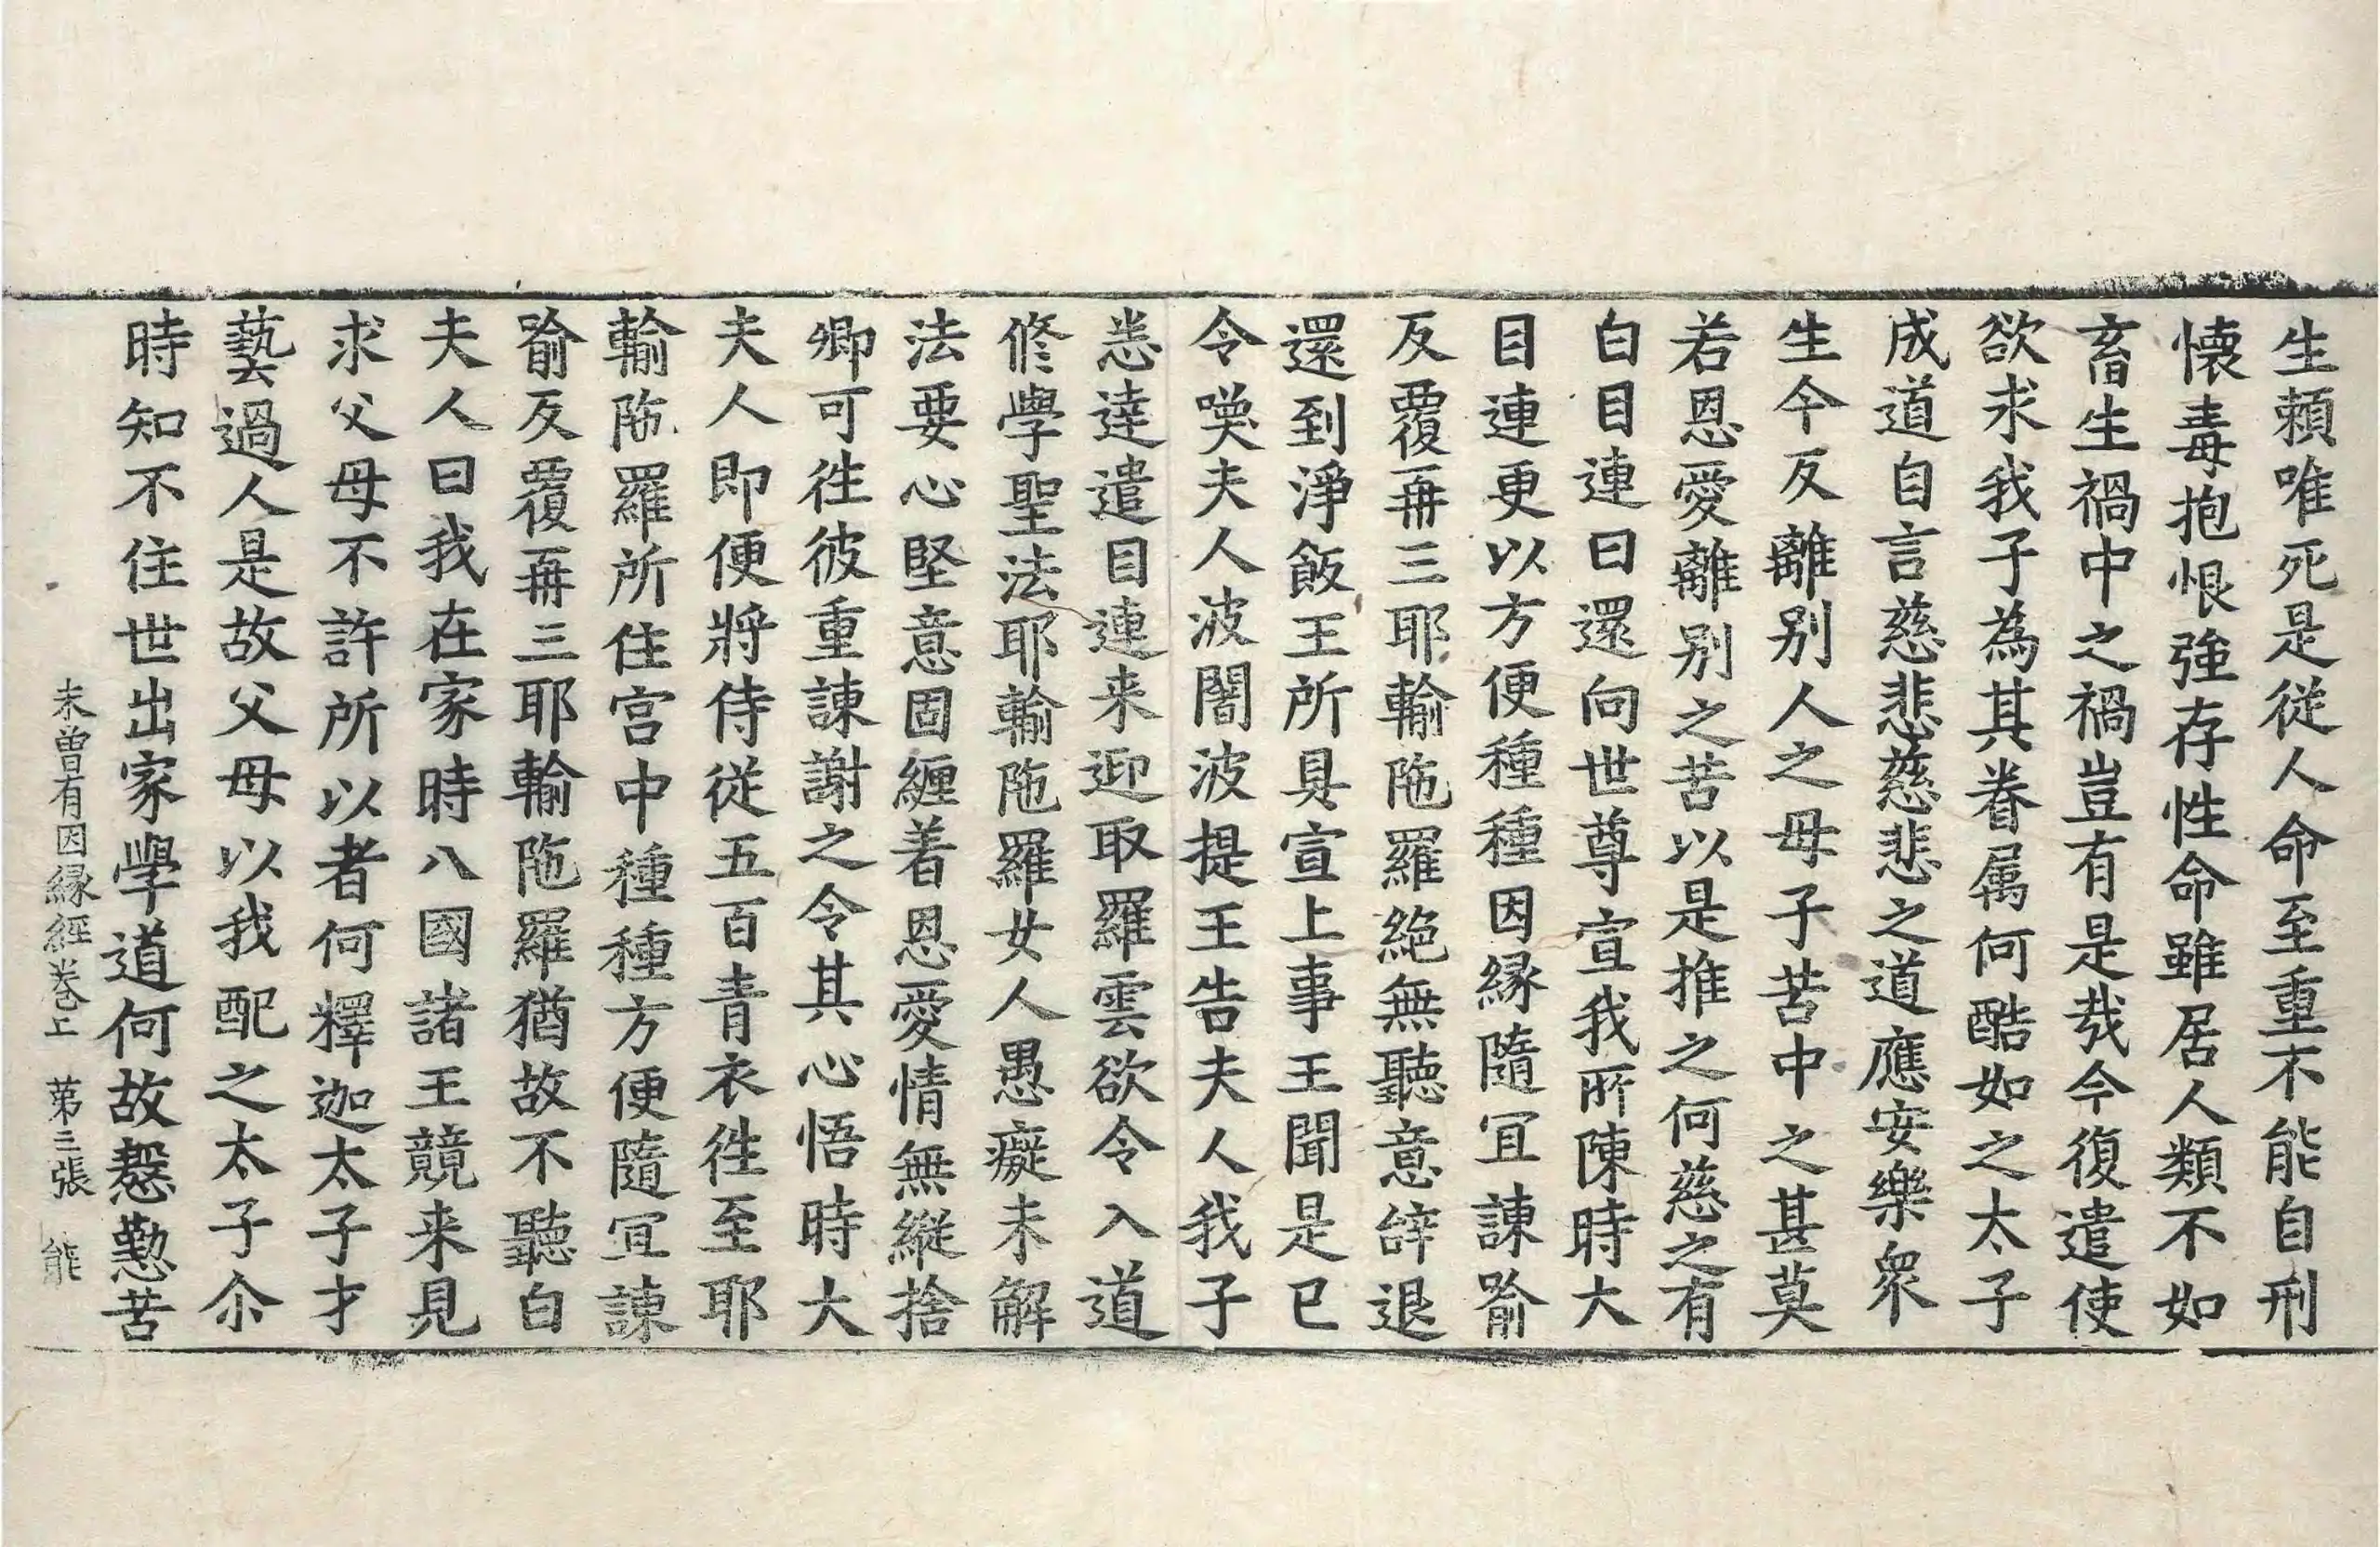 生頼唯死是従人命至重不能自刑
懐毒抱恨強存性命雖居人類不如
畜生禍中之禍豈有是㦲今復遣使
欲求我子為其眷属何酷如之太子
成道自言慈悲慈悲之道應安樂衆
生今反離别人之母子苦中之甚莫
若恩愛離别之苦以是推之何慈之有
白目連曰還向世尊宣我所陳時大
目連更以方便種種因縁隨冝諫喻
反覆再三耶輸陁羅絶無聽意辝退
還到淨飯王所具宣上事王聞是已
令喚夫人波闍波提王告夫人我子
悉達遣目連来迎取羅雲欲令入道
修學聖法耶輸陁羅女人愚癡未解
法要心堅意固纏着恩愛情無縱捨
卿可往彼重諫謝之令其心悟時大
夫人即便將侍従五百青衣往至耶
輸陁羅所住宫中種種方便隨冝諫
喻反覆再三耶輸陁羅猶故不聽白
夫人曰我在家時八國諸王競来見
求父母不許所以者何釋迦太子才
藝過人是故父母以我配之太子尒
時知不住世出家學道何故慇懃苦
未曽有因縁經巻上　苐三張　能